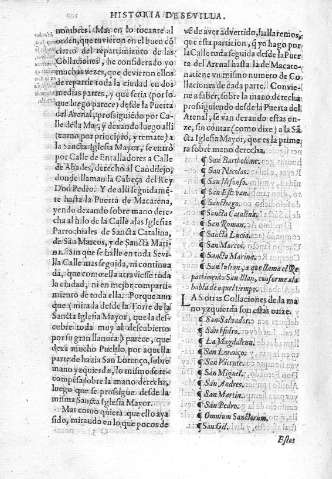 HISTORIA DE SEVILLA.
nombres. Mas en lo tocante al
orden, que tuvieron en el buen cõ
cierto del repartimiento de las
Collaciones, he considerado yo
muchas vezes, que devieron ellos
de repartir toda la ciudad en dos
medias partes, y que seria (por lo
que luego parece) desde la Puerta
del Arenal, prosiguiẽdo por Ca-
lle de la Mar, y dexando luego alli
(como por principio, y remate) a
la Sancta Iglesia Mayor, se entrò
por Calle de Entalladores a Calle
de Abades, derecho al Candilejo
donde llaman la Cabeça del Rey
Don Pedro. Y de alli seguidamẽ
te hasta la Puerta de Macarena,
yendo dexando sobre mano dere
cha al hilo de la Calle a las Iglesias
Parrochiales de Sancta Catalina,
de Sãs Marcos, y de Sancta Mari-
na. Sin que se halle en toda Sevi-
lla Calle mas seguida, ni continua
da, que como ella atraviesse toda
la ciudad, ni en mejor comparti-
miento de toda ella. Porque aun
que (mirada desde la Torre de la
Sancta Iglesia Mayor, que la des-
cubre toda muy al descubierto
por su gran llanura) parece, que
dexa mucho Pueblo, por aquella
parte de hazia San Lorenço, sobre
mano yzquierda, lo mismo se re-
compensa sobre la mano derecha,
luego que se prosigue desde la
misma Sancta Iglesia Mayor.
Mas como quiera que ello aya
sido, mirando en lo que pocos de
vẽ de aver advertido, hallaremos,
que esta particion, q̃ yo hago por
la Calle toda seguida desde la Pu-
erta del Arenal hasta la de Macare-
na tiene un mismo numero de Co
llaciones de cada parte. Convie-
ne a saber, sobre la mano derecha
prosiguiendo desde la Puerta del
Arenal, se van dexando estas on-
ze, sin contar (como dixe) a la Sã
cta Iglesia Mayor, que es la prime-
ra sobre mano derecha.
¶ San Bartholome.
¶ San Nicolas.
¶ San Ilefonso.
¶ San Estevan.
¶ Sanctiago.
¶ Sancta Catalina.
¶ San Roman.
¶ Sancta Lucia.
¶ San Marcos.
¶ Sancta Marina.
¶ San Julian, a que llama el Re-
partimiento San Illan, conforme a la
habla de aquel tiempo.
LAS otras Collaciones de la ma
no yzquierda son estas onze.
¶ San Salvador.
¶ San Isidro.
¶ La Magdalena.
¶ San Lorenço.
¶ San Vicente.
¶ San Miguel.
¶ San Andres.
¶ San Martin.
¶ San Pedro.
¶ Omnium Sanctorum.
¶ San Gil.
Estas